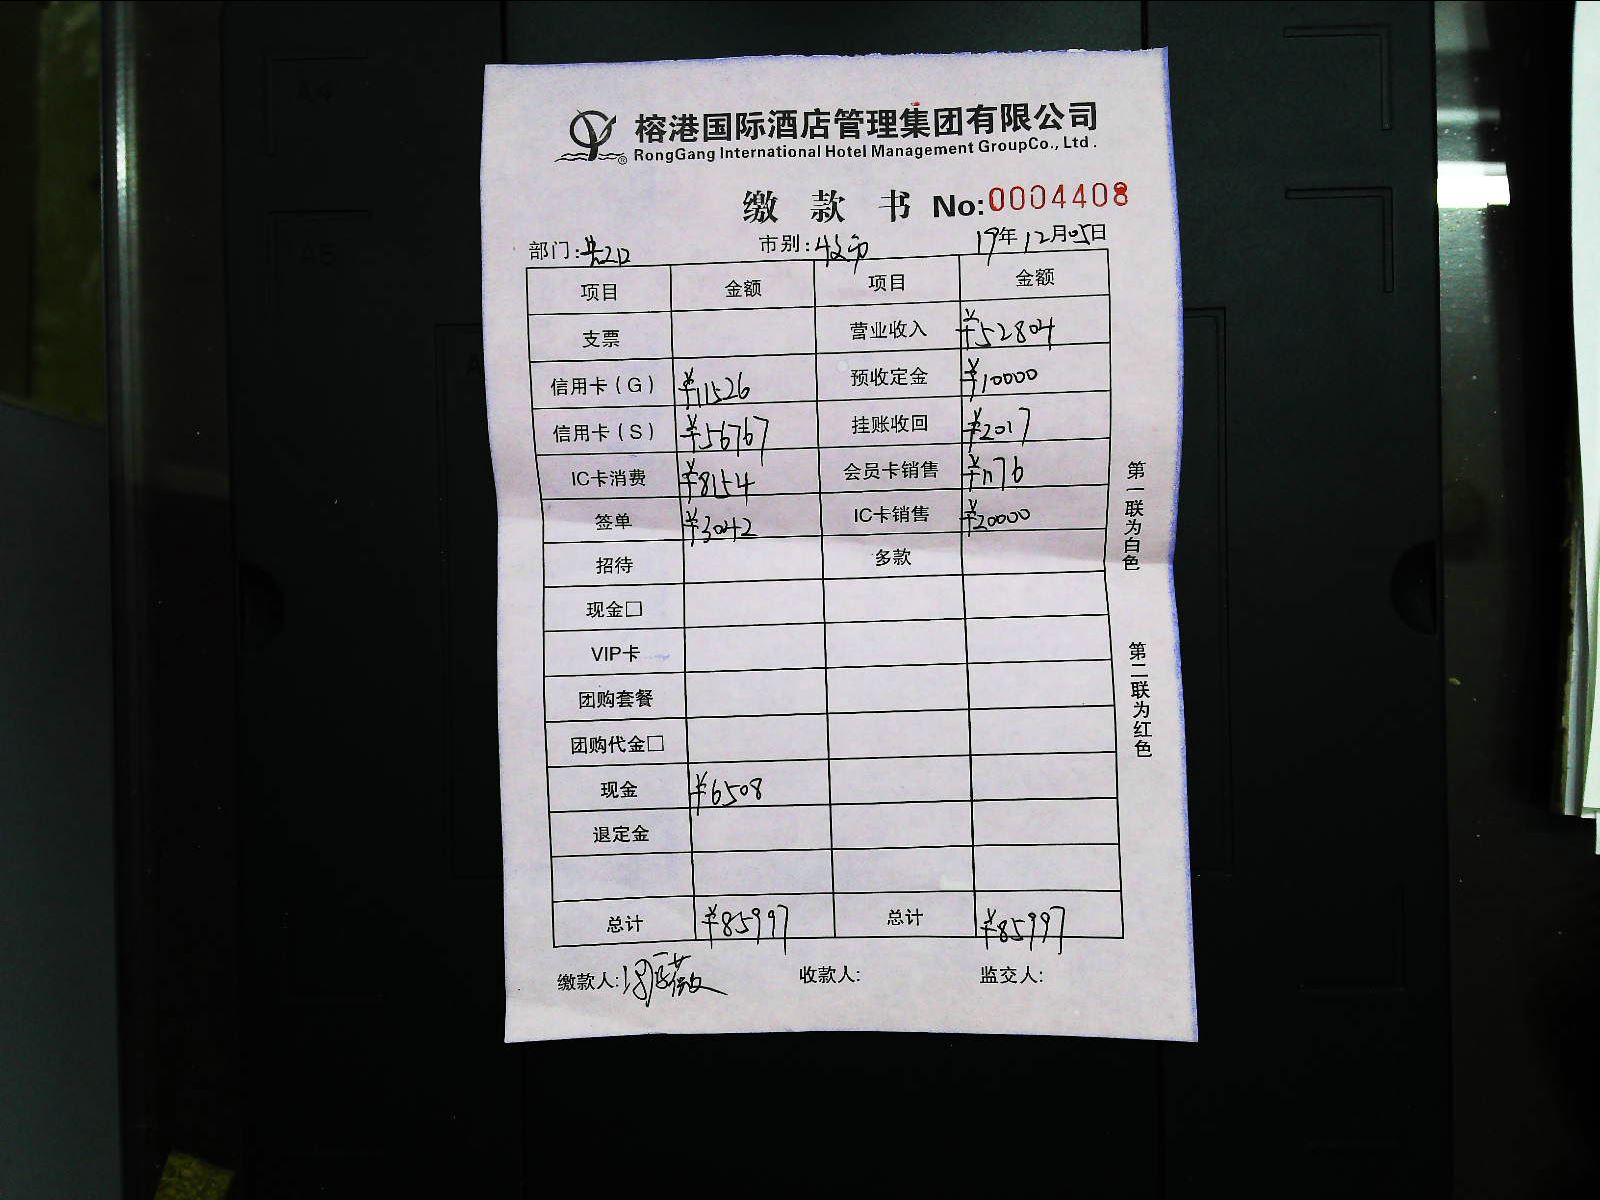 A4
A5
榕港国际酒店管理集团有限公司
RongGang International Hotel Management GroupCo., Ltd.
缴款书 No:0004408
部门: 市别: 19年12月05日
项目 金额 项目 金额
支票 营业收入 ¥52804
信用卡(G) ¥11526 预收定金 ¥10000
信用卡(S) ¥56767 挂账收回 ¥2017
IC卡消费 ¥8154 会员卡销售 ¥1176
签单 ¥3042 IC卡销售 ¥20000
招待 多款
现金□
VIP卡
团购套餐
团购代金□
现金 ¥6508
退定金
总计 ¥85997 总计 ¥85997
缴款人: 收款人: 监交人:
第一联为白色
第二联为红色